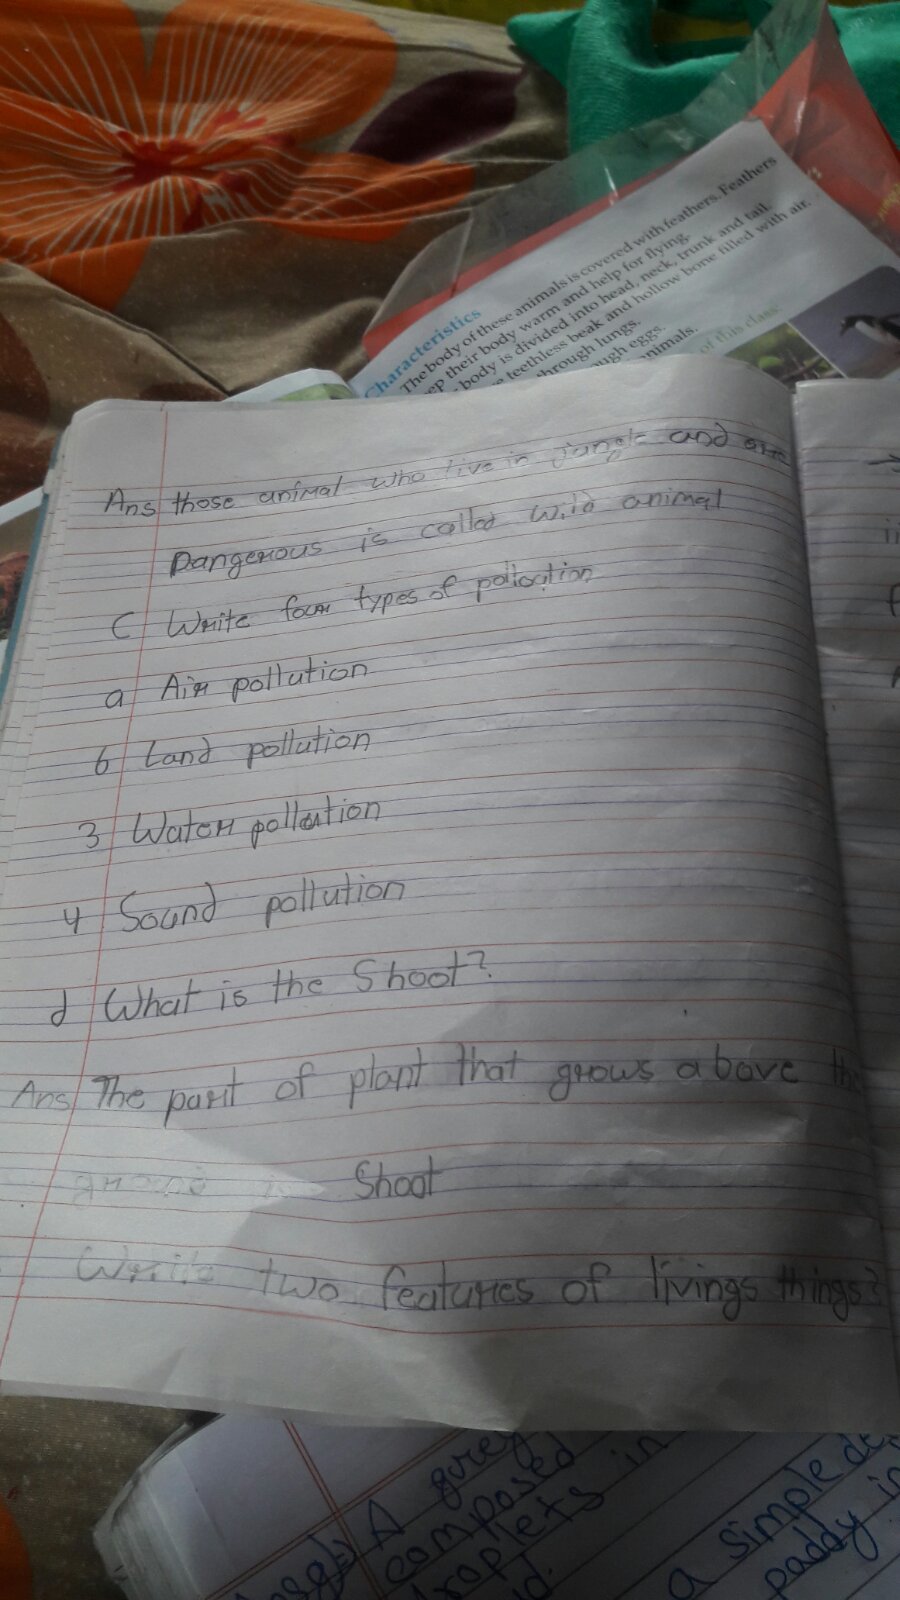 Characteristics
The body of these animals is covered with feathers. Feathers
ep their body warm and help for flying.
body is divided into head, neck, trunk and tail.
e teethless beak and hollow bone filled with air.
through lungs.
ough eggs.
animals.
of this class
Ans those animal who live in jungle and are
Dangerous is called wild animal
C Write four types of polloution
a Air pollution
b Land pollution
3 Water pollution
4 Sound pollution
d What is the Shoot?
Ans The part of plant that grows above the
Shoot
Write two features of livings things?
A grey
composed
droplets in
a simple de
paddy in